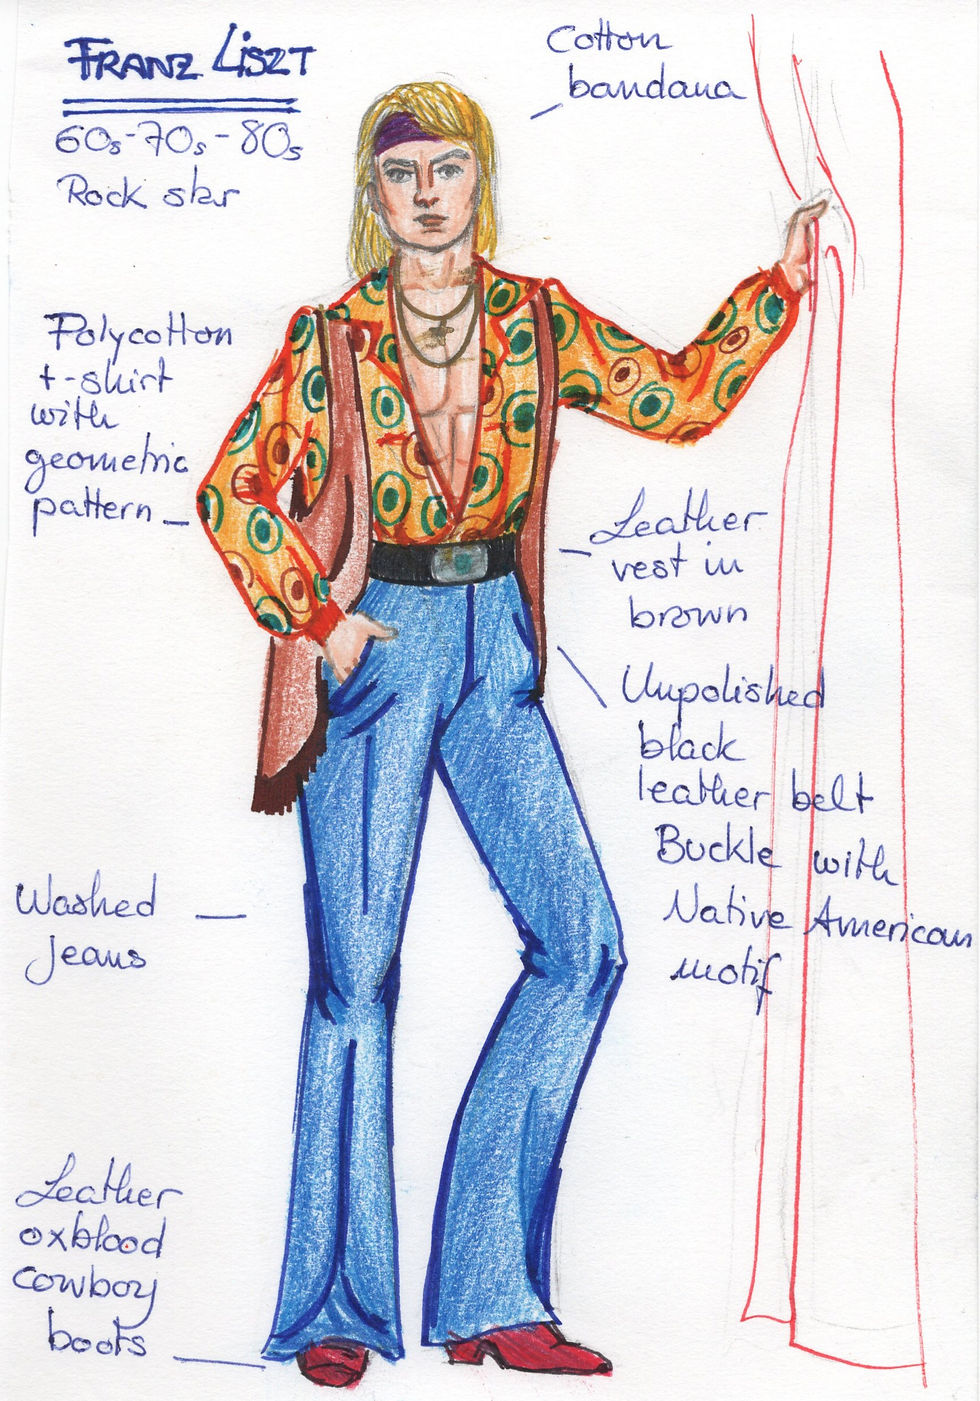 FRANZ LISZT
60s-70s-80s
Rock star
Cotton
bandana
Polycotton
t-shirt
with
geometric
pattern
Leather
vest in
brown
Unpolished
black
leather belt
Buckle with
Native American
motif
Washed
jeans
Leather
oxblood
cowboy
boots